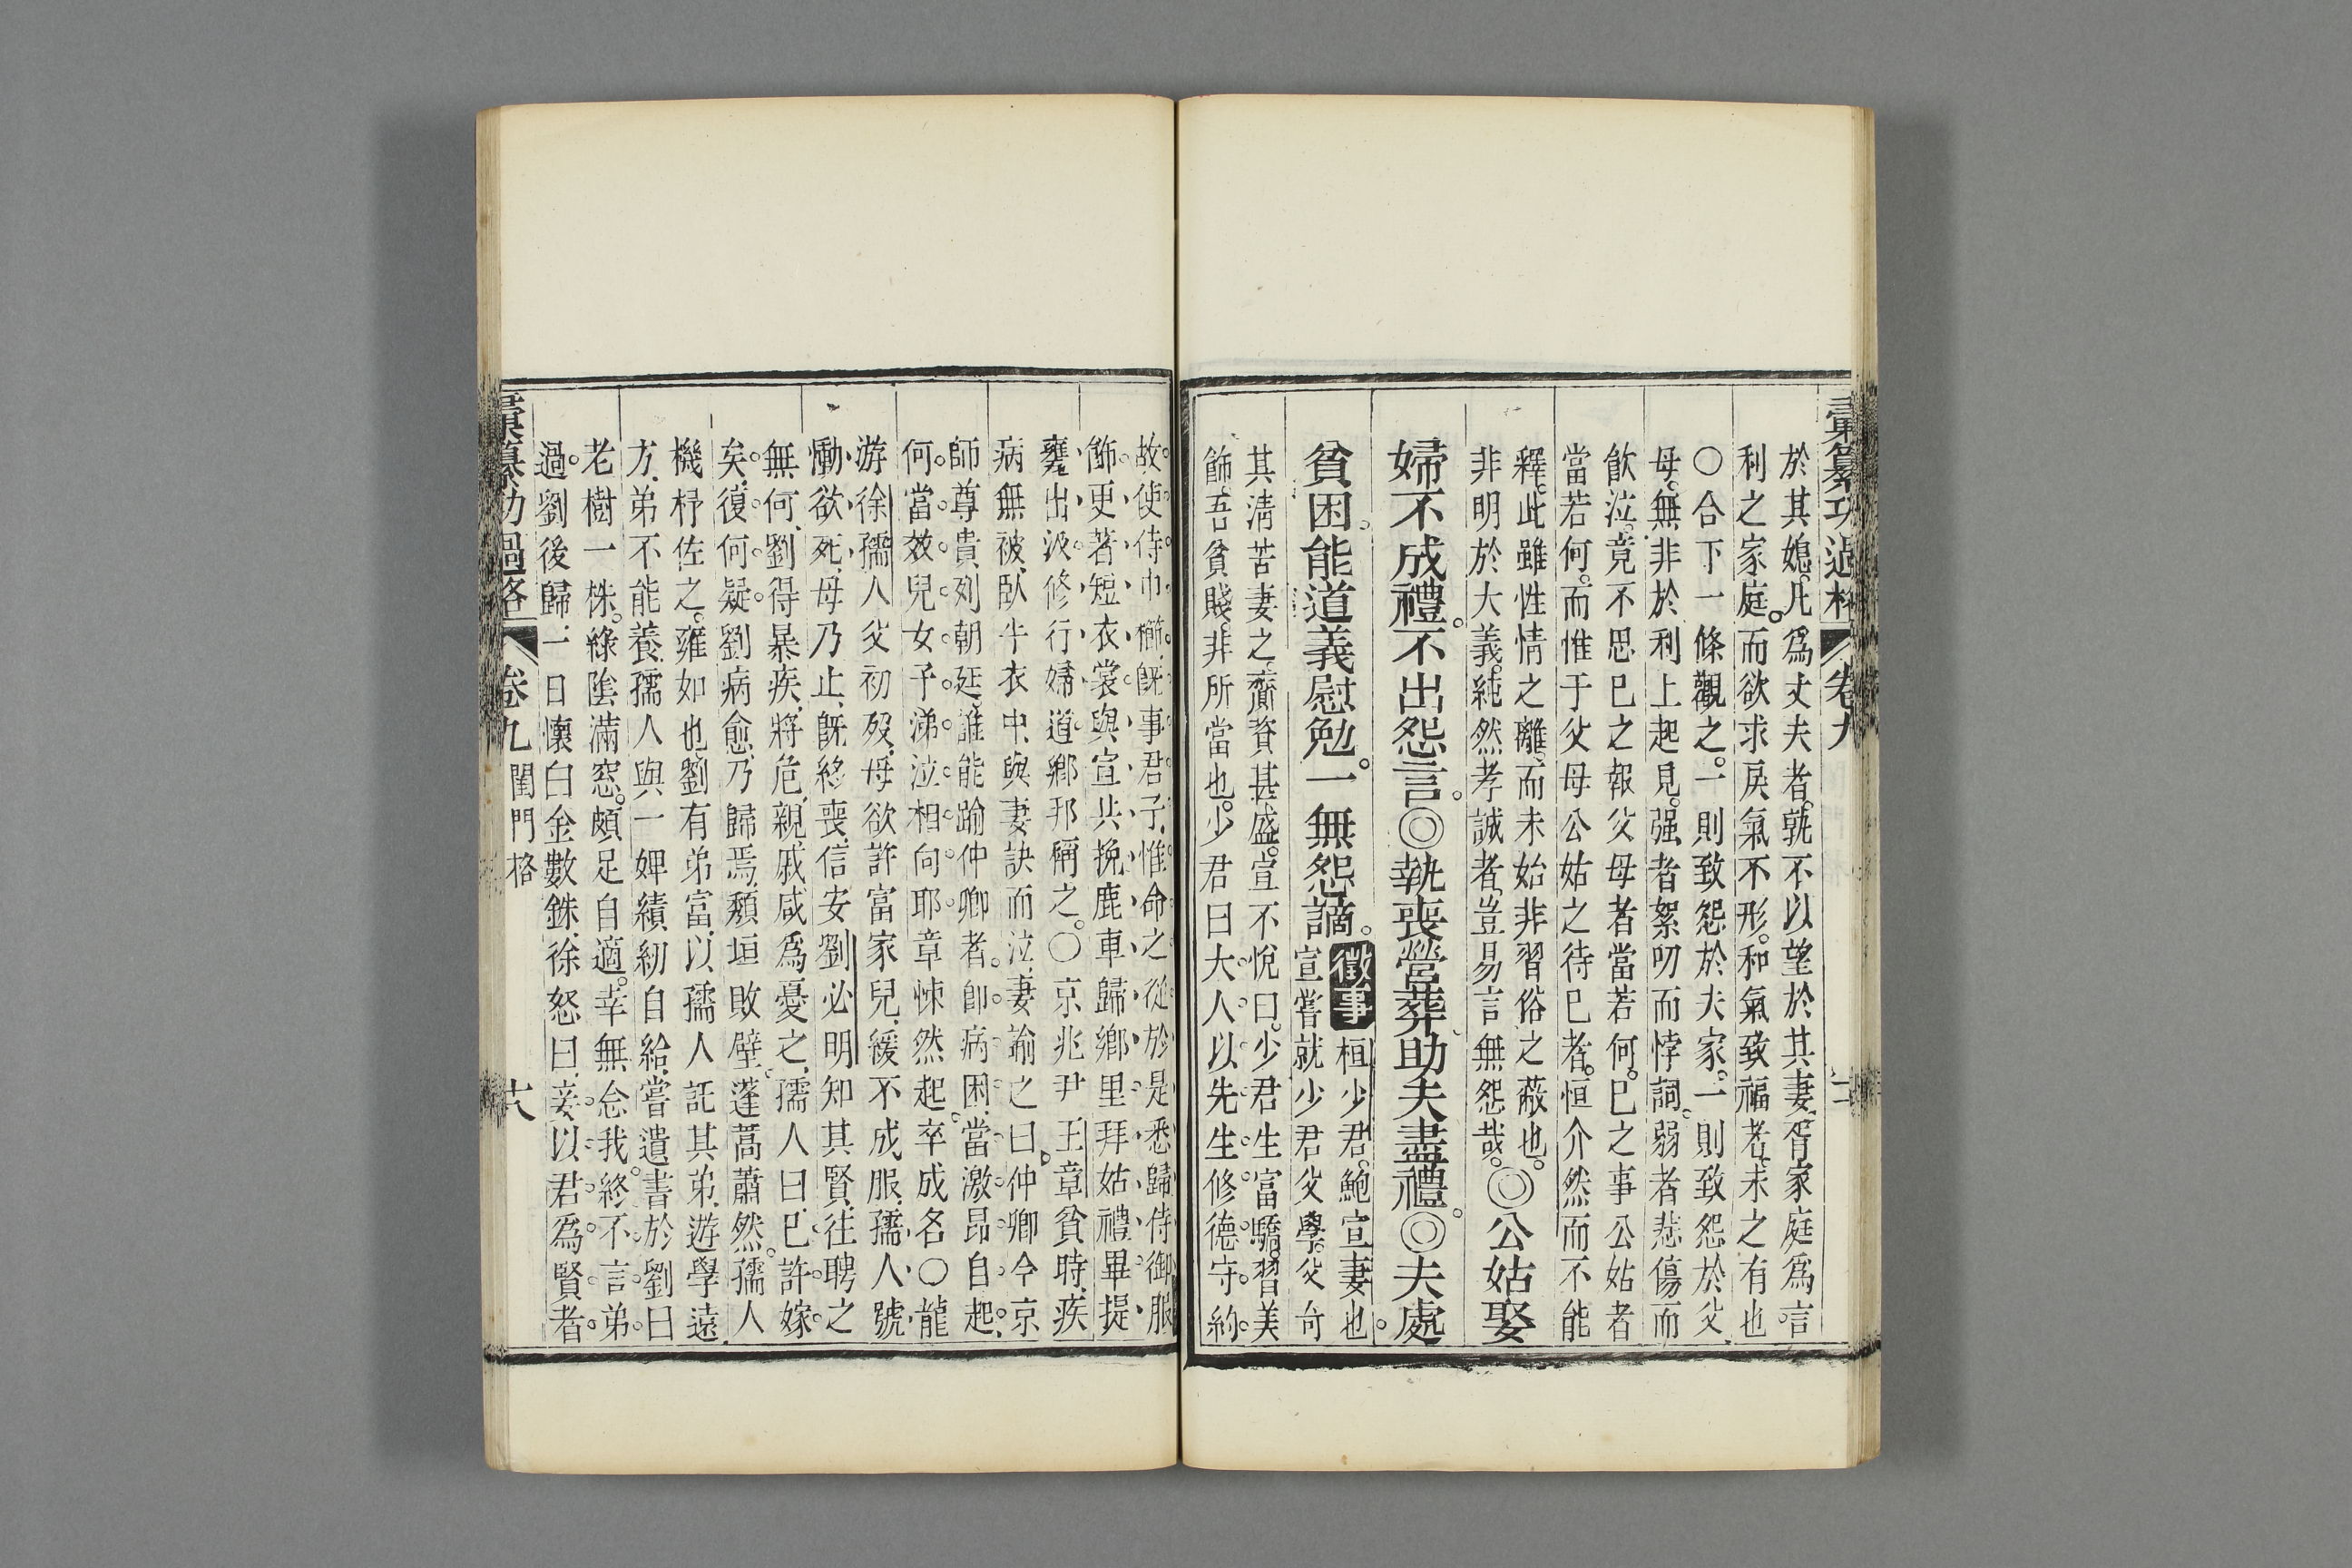 彚纂功過格 卷九
於其媳。凡爲丈夫者。孰不以望於其妻。胥家庭爲言
利之家庭。而欲求戾氣不形。和氣致福者。未之有也
〇合下一條觀之。一則致怨於夫家。一則致怨於父
母。無非於利上起見。强者絮叨而悖詞。弱者悲傷而
飮泣。竟不思已之報父母者當若何。已之事公姑者
當若何。而惟于父母公姑之待已者。恒介然而不能
釋。此雖性情之離。而未始非習俗之蔽也。◎公姑娶
非明於大義。純然孝誠者。豈易言無怨哉。
婦不成禮。不出怨言。◎執喪營葬助夫盡禮。◎夫處
貧困。能道義慰勉。一無怨讁。徵事 桓少君。鮑宣妻也。
宣嘗就少君父學。父奇
其淸苦妻之。齎資甚盛。宣不悅曰。少君生富驕。習美
飾。吾貧賤。非所當也。少君曰大人以先生修德守約。
故使侍巾櫛。旣事君子。惟命之從。於是悉歸侍御服
飾。更著短衣裳。與宣共挽鹿車。歸鄉里。拜姑禮畢。提
甕出汲。修行婦道。鄉邦稱之。〇京兆尹王章貧時。疾
病無被。臥牛衣中。與妻訣而泣。妻諭之曰仲卿今京
師尊貴列朝廷。誰能踰仲卿者。卽病困。當激昂自起。
何當效兒女子涕泣相向耶。章悚然起。卒成名。〇龍
游徐孺人父初歿。母欲許富家兒。緩不成服。孺人號
慟欲死。母乃止。旣終喪。信安劉必明知其賢。往聘之
無何。劉得暴疾。將危。親戚咸爲憂之。孺人曰。已許嫁
矣。復何疑。劉病愈。乃歸焉。頹垣敗壁。蓬蒿蕭然。孺人
機杼佐之。雍如也。劉有弟富。以孺人託其弟。遊學遠
方。弟不能養。孺人與一婢績紉自給。嘗遺書於劉曰
老樹一株。綠陰滿窓。頗足自適。幸無念我。終不言弟
過。劉後歸。一日懷白金數銖。徐怒曰。妾以君爲賢者
彚纂功過格 卷九 閨門格 十八